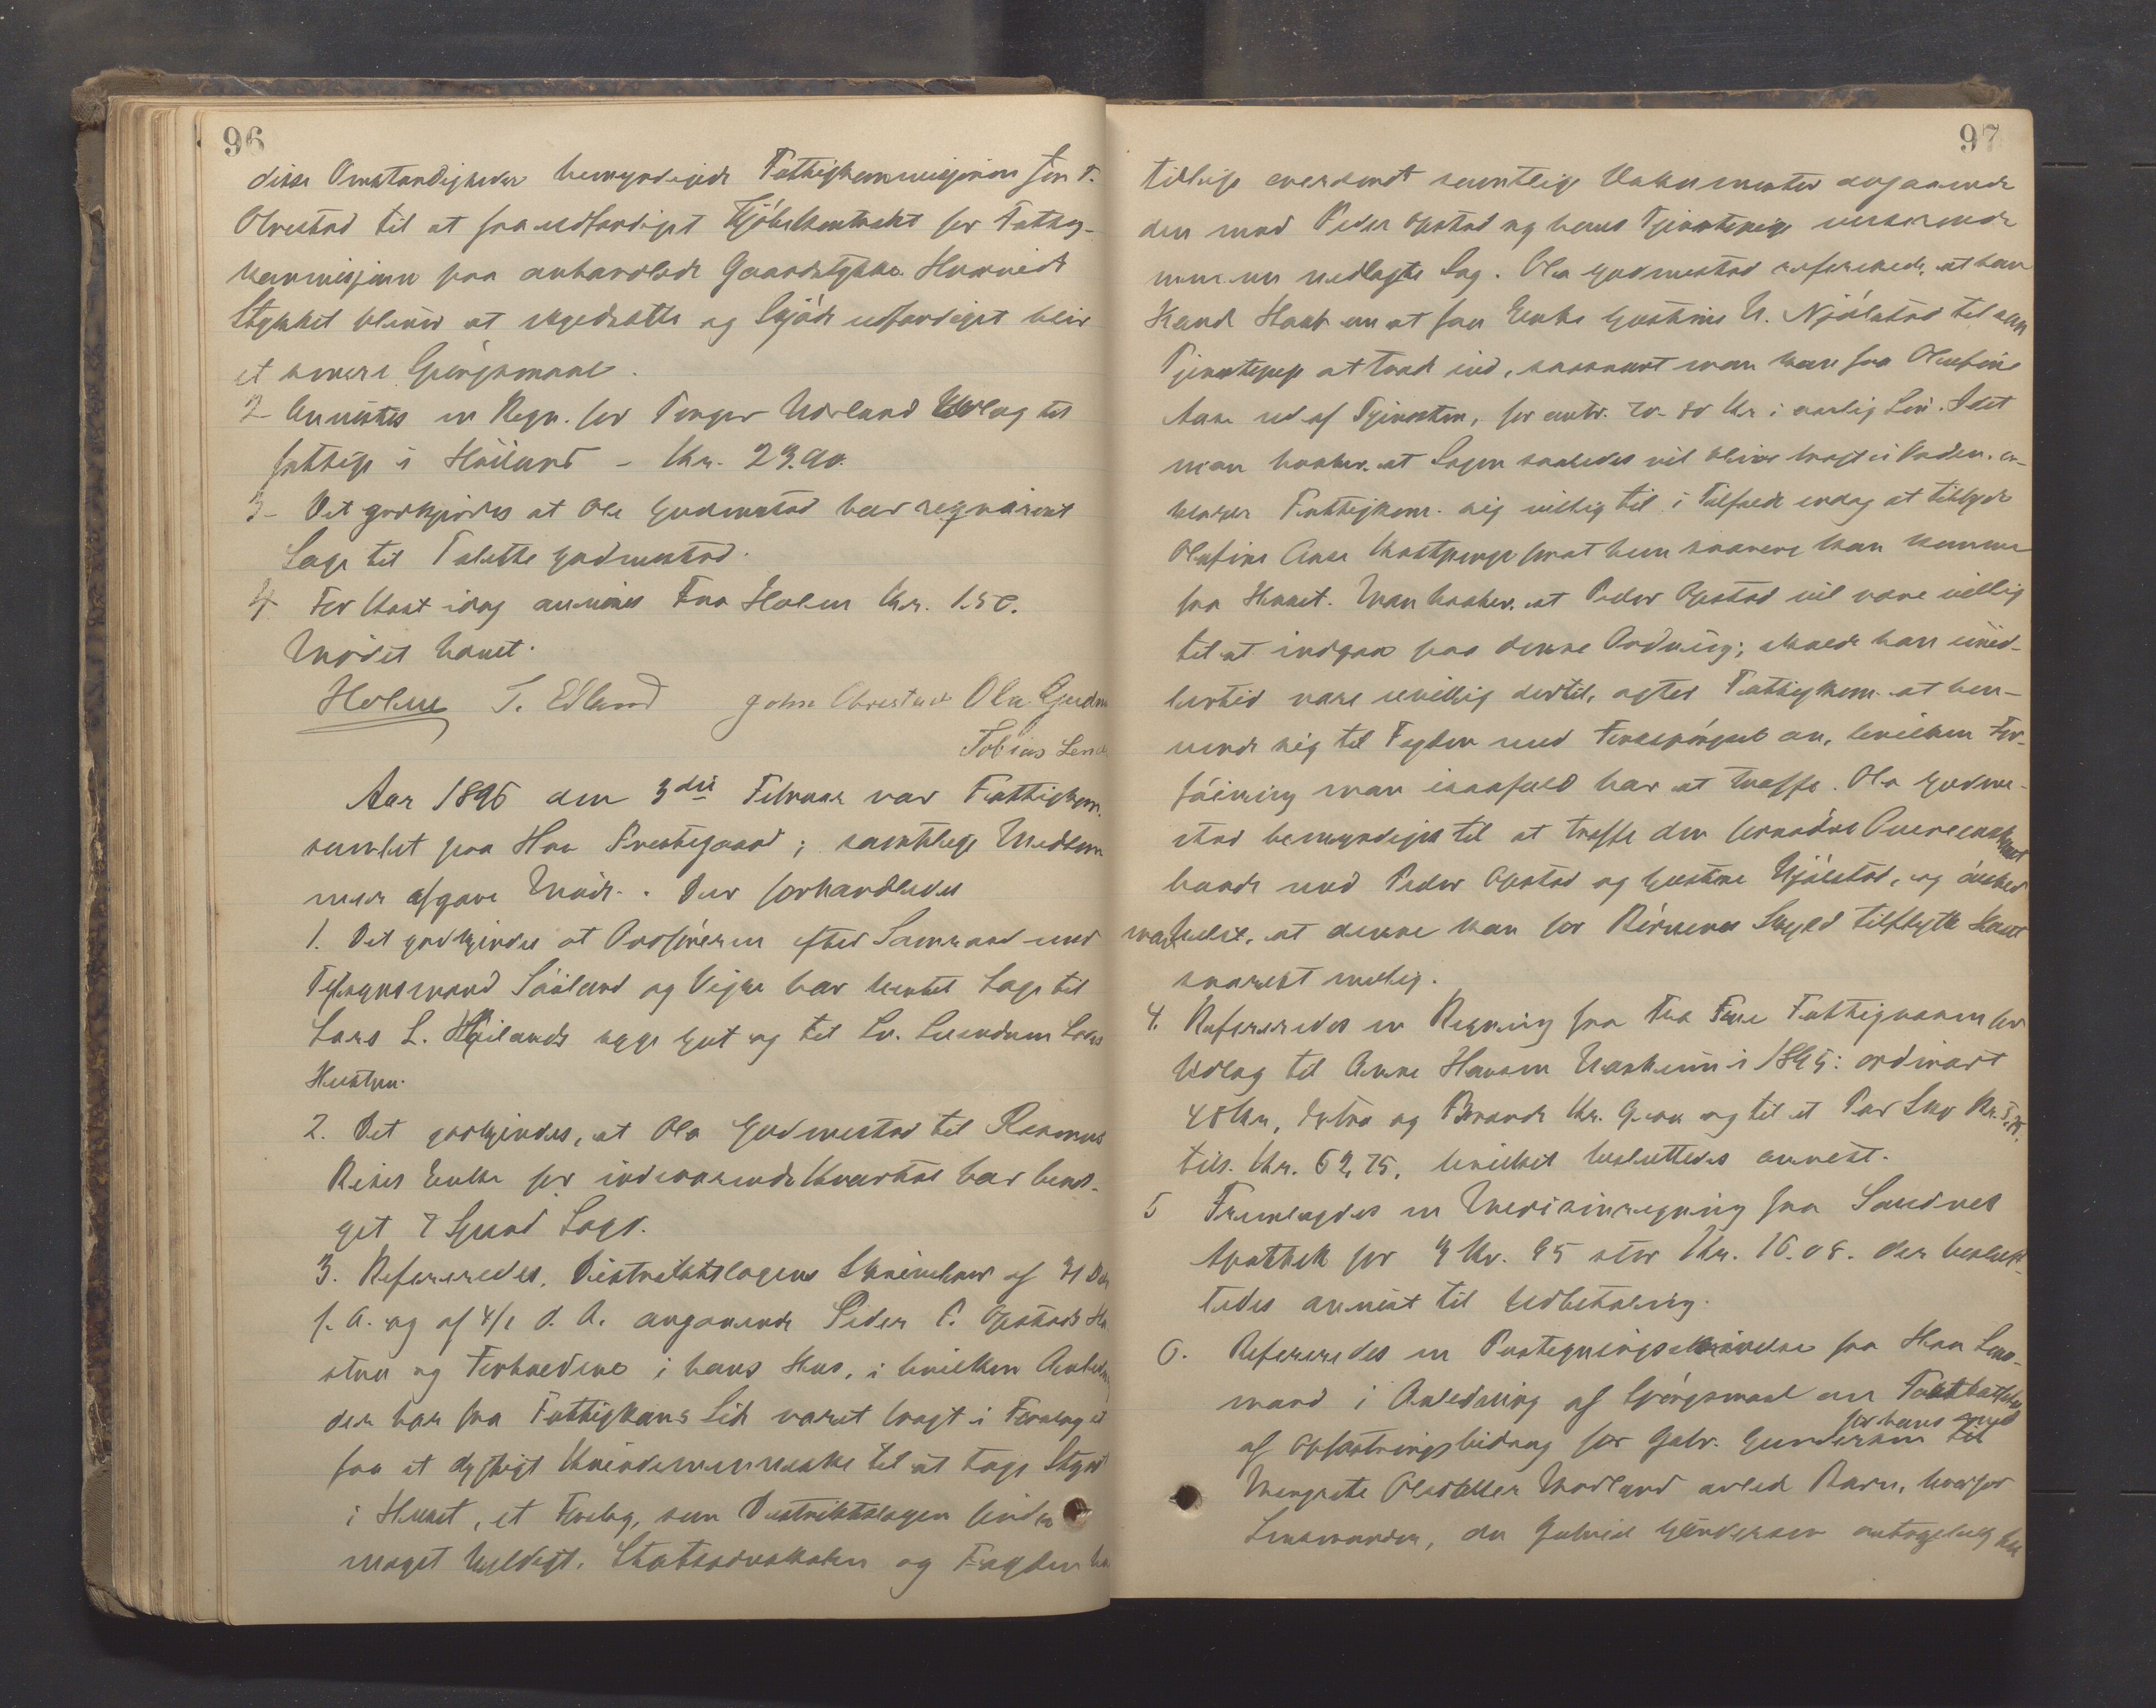 96
disse Omstændigheder bemyndigede Fattigkommisjonen John T.
Obrestad til at faa udfærdiget Kjøbekontrakt for Fattig-
kommisjonen paa omhandlede Gaardstykke. Hvorvidt
Stykket bliver at skyldsætte og Skjøde udfærdiget bliv
et senere Spørgsmaal.
2 Anvistes en Regn. for Torger Udland Udlag til
fattige i Høiland – Kr. 23.90.
3– Det godkjendes at Ola Gudmestad har regvireret
Læge til Gudmestad.
4 For Kost idag anvises Fru Holm Kr. 1.50.
Mødet hævet.
Holm T. Edland John Obrestad Ola Gudm
Tobias
Aar 1896 den 3die Februar var Fattigkom.
samlet paa Haa Prestegaard; samtlige Medlem
mer afgave Møde. Der forhandledes
1. Det godkjendes at Ordføreren efter Samraad med
Tilsynsmand Søiland og Vigre har hentet Læge til
Lars L. Høilands syge Gut og til Lars
Hustru.
2. Det godkjendes, at Ola Gudmestad til Rasmus
Enke for indeværende Kvartal har
get 7 Spand Bygg.
3. Refereredes Distriktslægens Skrivelser af 31 De
f. A. og af 4/1 d. A. angaaende Peder P. Opstads Hu
stru og Forholdene i hans Hus, i hvilken Anledn
der har fra Fattigkoms Side været bragt i Forslag at
faa et dygtigt Kvindemenneske til at tage Styr
i Huset, et Forslag, som Distriktslægen finder
meget heldigt. Statsadvokaten og Fogden ha
97
tillige oversendt samtlige Dokumenter angaaende
den mod Peder Opstad og hans Tjenestepige verserende
men nu nedlagte Sag. Ola Gudmestad refererede, at han
havde Haab om at faa Enke Gustine N. Njølstad til som
Tjenestepige at træde ind, saasnart man kan faa Olufine
Aase ud af Tjenesten, for omtr. 70–80 Kr i aarlig Løn. Idet
man haaber, at Sagen saaledes vil blive bragt i Orden, er-
klærer Fattigkom. sig villig til i Tilfælde endog at tilbyde
Olufine Aase Kostpenge forat hun snarere kan komme
fra Huset. Man haaber, at Peder Opstad vil være villig
til at indgaa paa denne Ordning; skulde han imid-
lertid være uvillig dertil, agter Fattigkom. at hen-
vende sig til Fogden med Forespørgsel om, hvilken For-
føining man isaafald har at træffe. Ola Gudme-
stad bemyndiges til at træffe den fornødne Overenskomst
baade med Peder Opstad og Gustine Njølstad, og ønsker
man helst, at denne kan for Børnenes Skyld tilflytte Huset
snarest mulig.
4. Refereredes en Regning fra Haa Fattigvæsen for
Udlag til Anne Hansen Naerheim i 1895: ordinært
48 Kr, Extra og Brænde Kr. 9.00 og til et Par Sko Kr. 5,75,
tils. Kr. 62,75, hvilket besluttedes anvist.
5 Fremlagdes en Medicinregning fra Sandnes
Apothek for 4 Kv. 95 stor Kr. 16.08. der beslut-
tedes anvist til Udbetaling.
6. Refereredes en Paategningsskrivelse fra Haa Lens-
mand i Anledning af Spørgsmaal om Fastsættelse
af Opfostringsbidrag for Gabr. Gundersen til
for hans med
Margrete Olsdatter Modland avlede Barn, hvorfor
Lensmanden, da Gabriel Gundersen antagelig